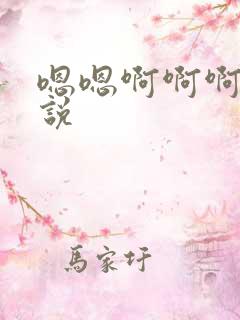 嗯嗯啊啊啊
說
馬家圩